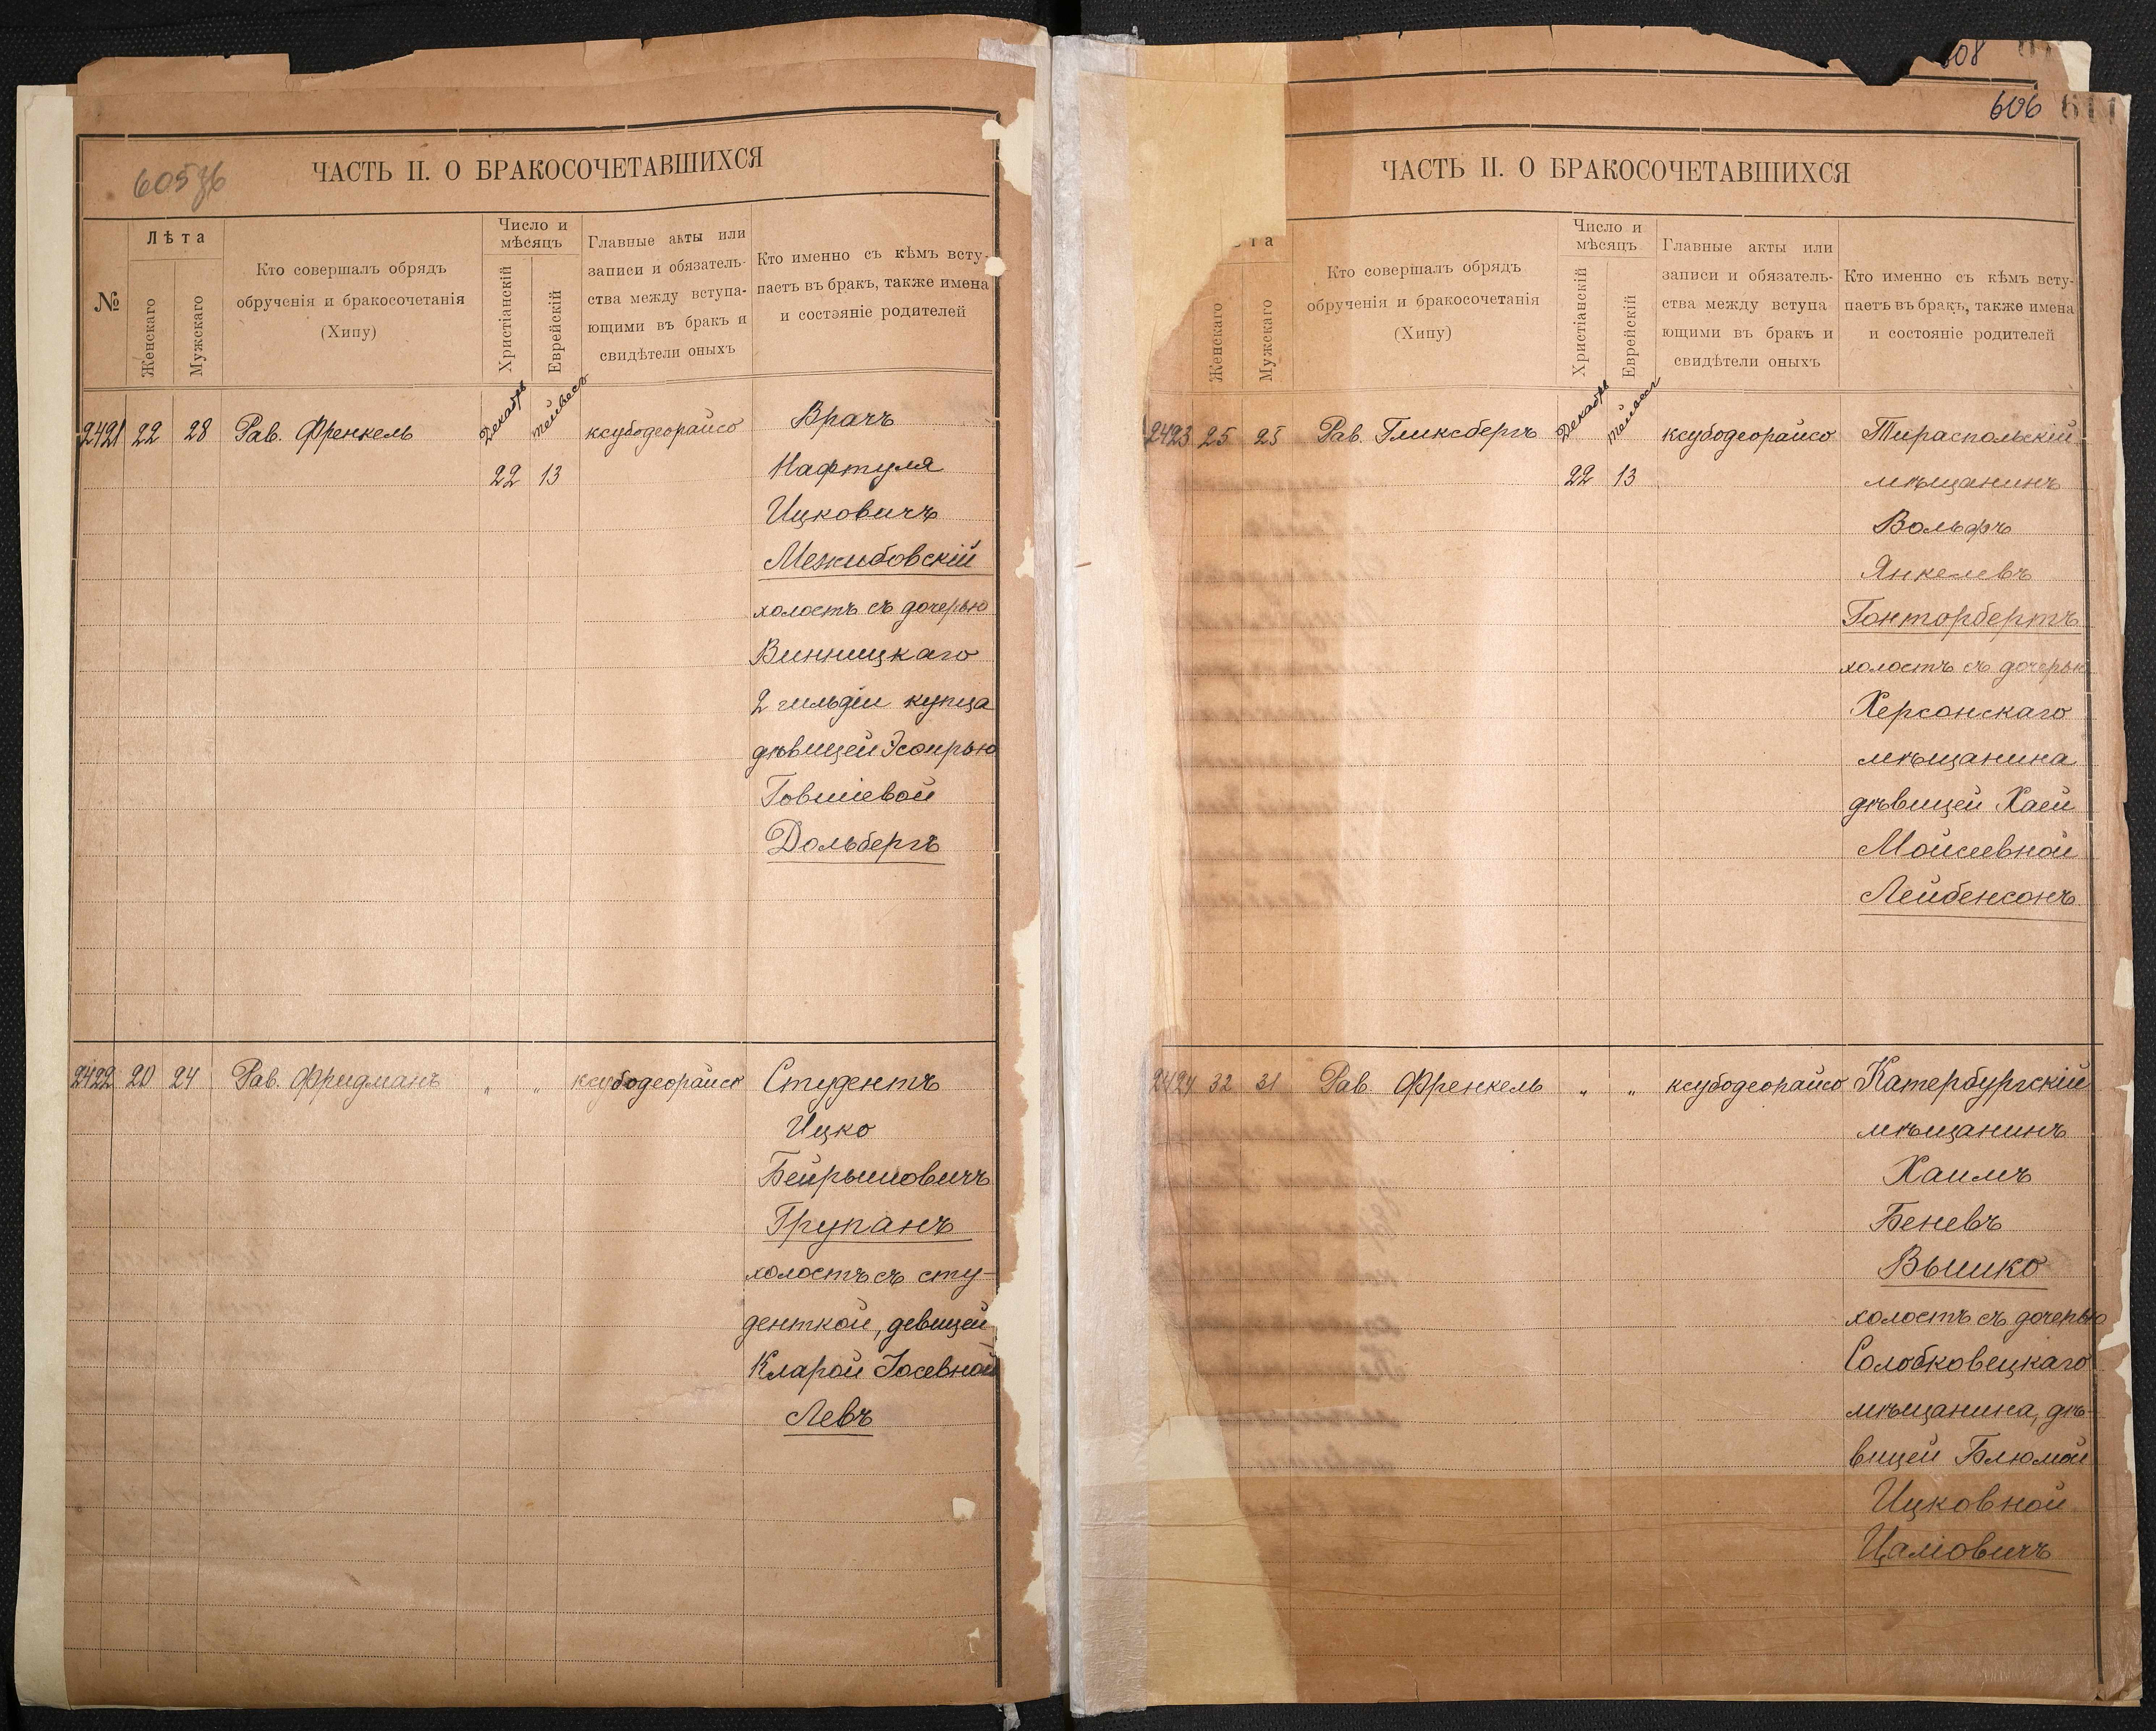 605 об
ЧАСТЬ II. О БРАКОСОЧЕТАВШИХСЯ
№
Лѣта
Женскаго
Мужскаго
Кто совершалъ обрядъ
обрученія и бракосочетанія
(Хипу)
Число и
мѣсяцъ
Христіанскій
Еврейскій
Главные акты или
записи и обязатель-
ства между вступа-
ющими въ бракъ и
свидѣтели оныхъ
Кто именно съ кѣмъ всту-
паетъ въ бракъ, также имена
и состояніе родителей
2421 22 28 Рав. Френкель Декабрь Тейвеса ксубодеорайсо Врачъ
22 13 Нафтуля
Ицковичъ
Межибовскій
холостъ съ дочерью
Винницкаго
2 гильдіи купца
дѣвицей Эсѳирью
Говшіевой
Дольбергъ
2422 20 24 Рав. Фридманъ " " ксубодеорайсо Студентъ
Ицко
Бейрышовичъ
Групанъ
холостъ съ сту-
денткой, девицей
Кларой Іосевной
Левъ
608
606 611
ЧАСТЬ II. О БРАКОСОЧЕТАВШИХСЯ
та
Женскаго
Мужскаго
Кто совершалъ обрядъ
обрученія и бракосочетанія
(Хипу)
Число и
мѣсяцъ
Христіанскій
Еврейскій
Главные акты или
записи и обязатель-
ства между вступа
ющими въ бракъ и
свидѣтели оныхъ
Кто именно съ кѣмъ всту-
паетъ въ бракъ, также имена
и состояніе родителей
2423 25 25 Рав. Гликсбергъ Декабрь Тейвеса ксубодеорайсо Тираспольскій
22 13 мѣщанинъ
Вольфъ
Янкелевъ
Гонторбертъ
холостъ съ дочерью
Херсонскаго
мѣщанина
дѣвицей Хаей
Мойсеевной
Лейбенсонъ
2424 32 31 Рав. Френкель " " ксубодеорайсо Катербургскій
мѣщанинъ
Хаимъ
Беневъ
Вышко
холостъ съ дочерью
Солобковецкаго
мѣщанина, дѣ-
вицей Блюмой
Ицковной
Цаліовичъ